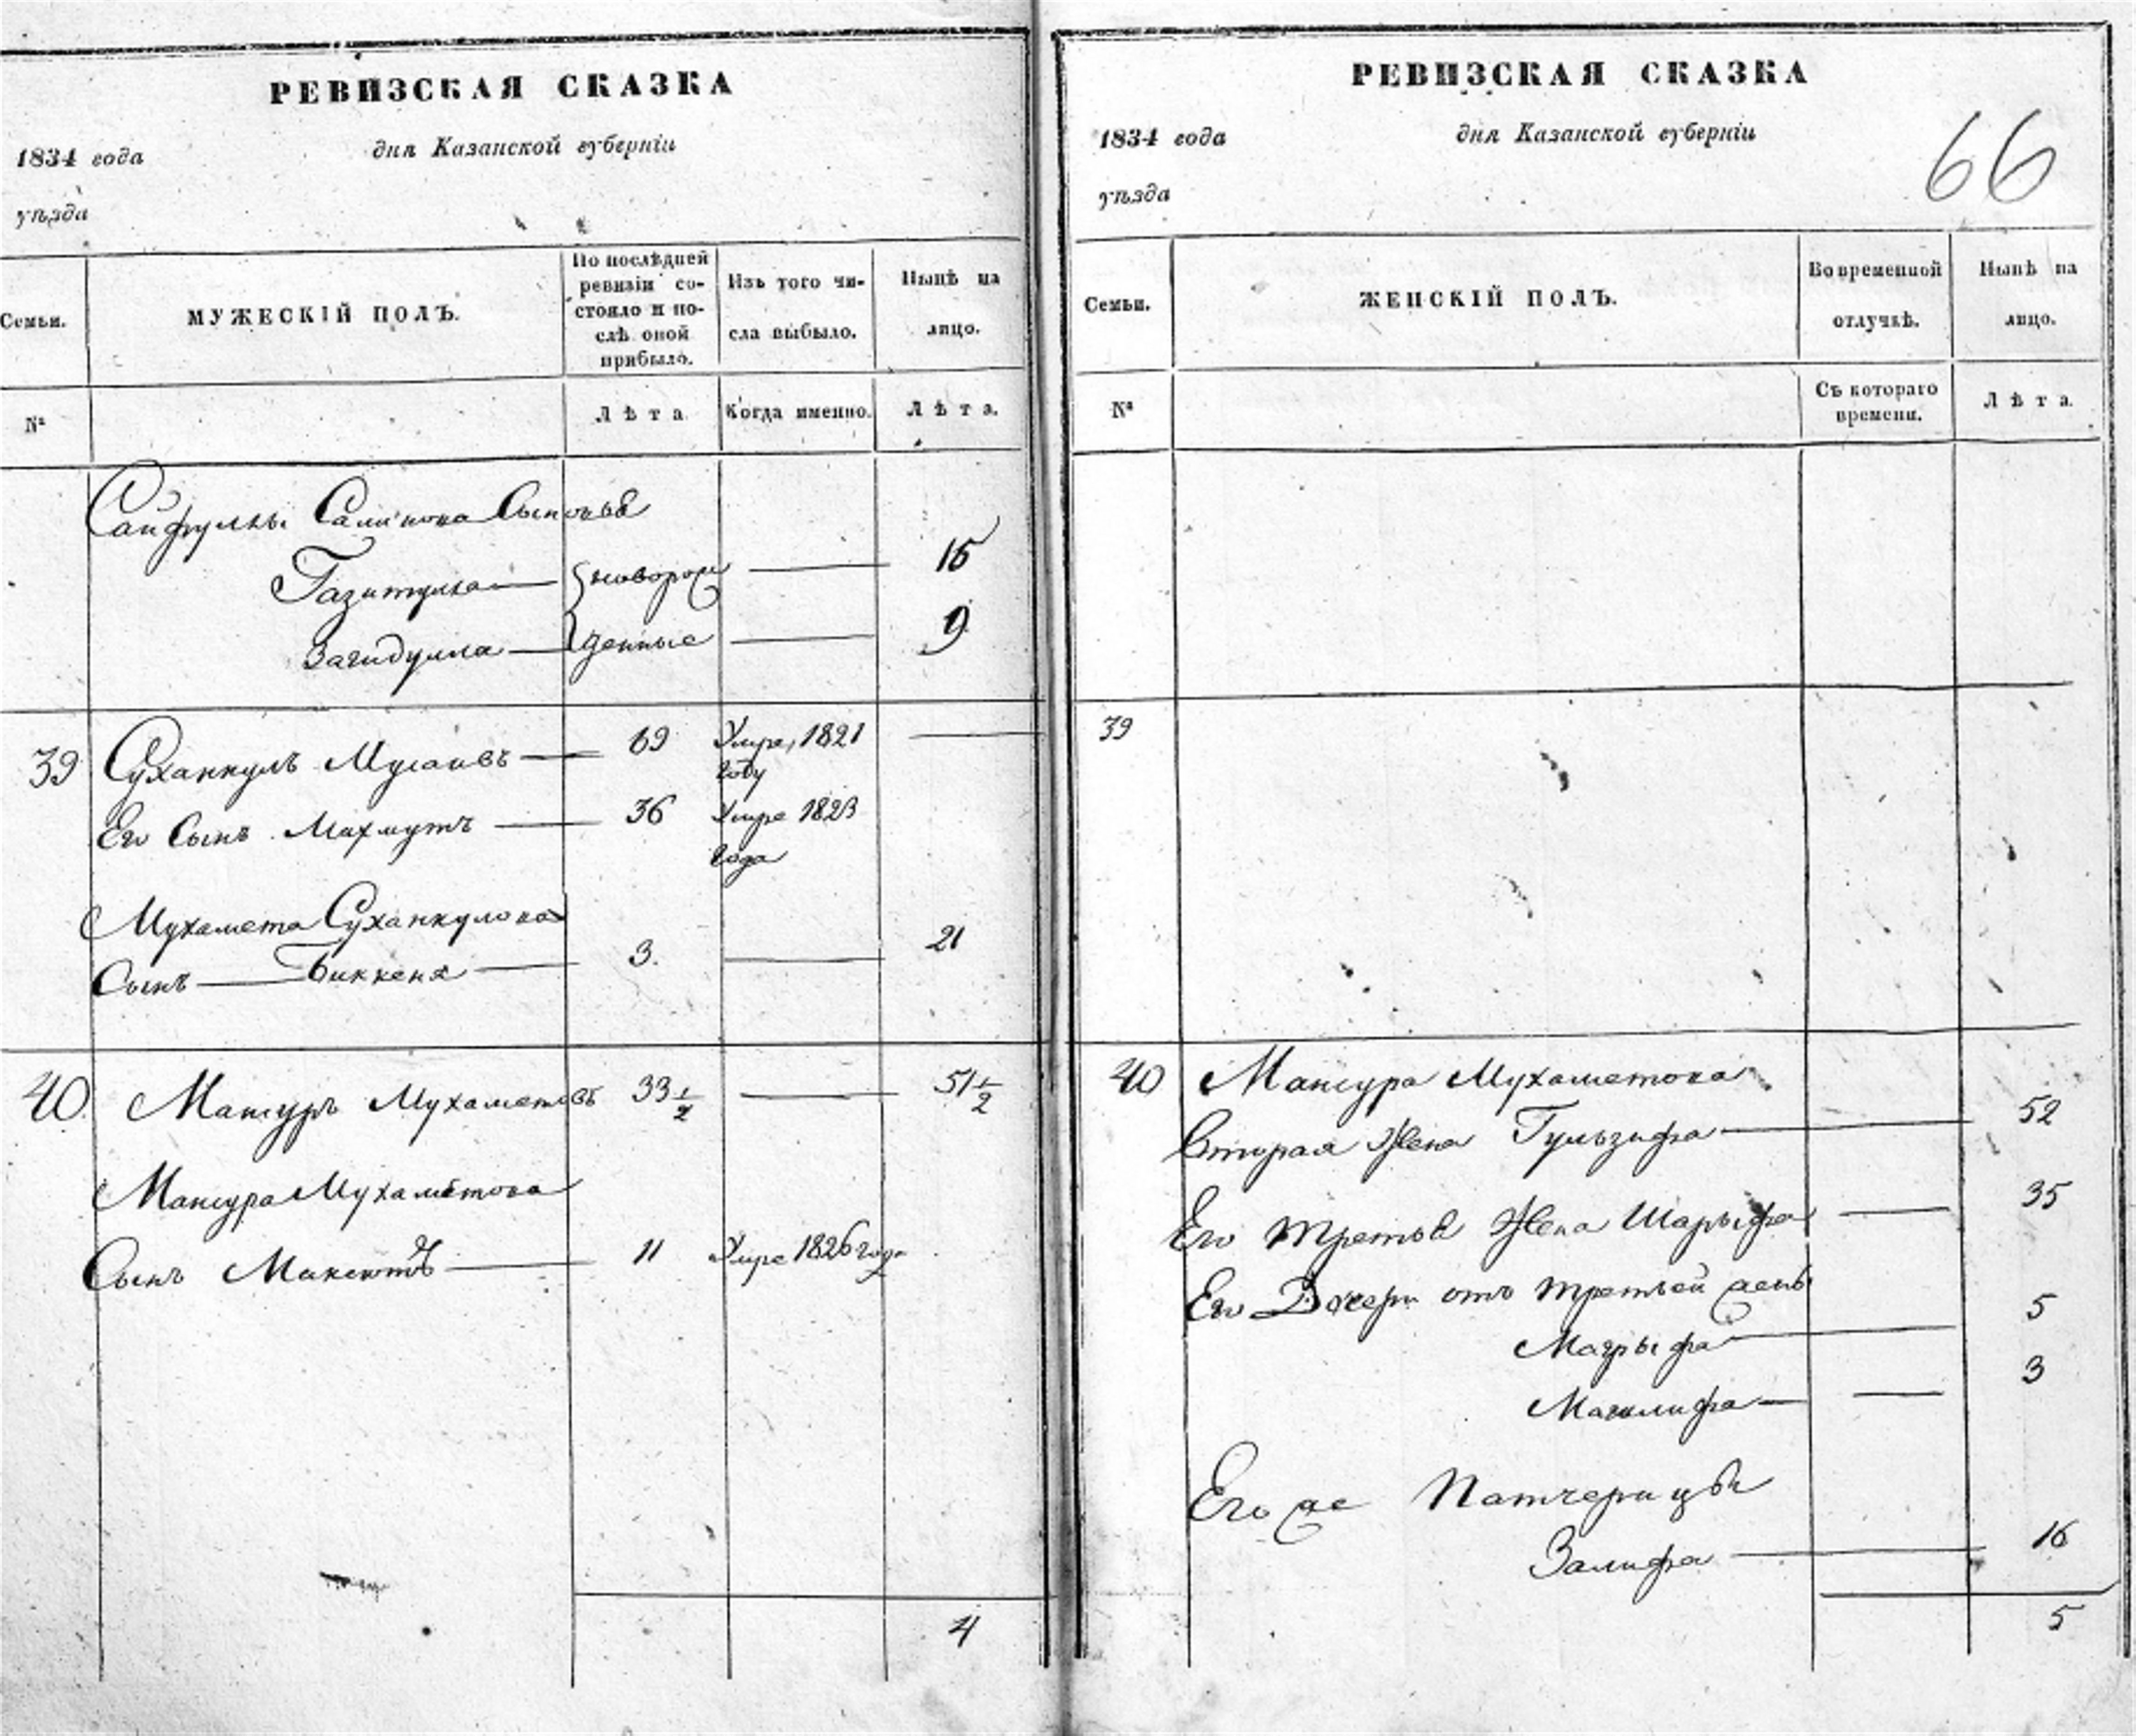 РЕВИЗСКАЯ СКАЗКА
1834 года
дня Казанской губерніи
уѣзда
Семьи.
МУЖЕСКІЙ ПОЛЪ.
По послѣдней
ревизіи со-
стояло и по-
слѣ оной
прибыло.
Изъ того чи-
сла выбыло.
Нынѣ на
лицо.
№
Лѣта
Когда именно.
Лѣта.
Сайфуллы Салимова Сыновья
Газитулла новорож 15
Загидулла денные 9
39 Суханкулъ Мусаивъ 69 Умре, 1821
году
Его Сынъ Махмутъ 36 Умре 1823
года
Мухамета Суханкулова
Сынъ Биккеня 3. 21
40. Мансуръ Мухаметовъ 33 1/2 51 1/2
Мансура Мухаметова
Сынъ Максютъ 11 Умре 1826 года
4
РЕВИЗСКАЯ СКАЗКА
66
1834 года
дня Казанской губерніи
уѣзда
Семьи.
ЖЕНСКІЙ ПОЛЪ.
Во временной
отлучкѣ.
Нынѣ на
лицо.
№
Съ котораго
времени.
Лѣта.
39
40 Мансура Мухаметова
Вторая Жена Гульзифа 52
Его третья Жена Шарыфа 35
Его Дочери отъ третьей жены
Магрыфа 5
Магалифа 3
Его же Патчерицы
Залифа 16
5